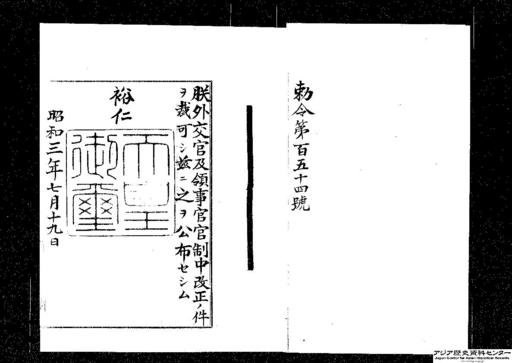 勅令第百五十四號
朕外交官及領事官官制中改正ノ件
ヲ裁可シ茲ニ之ヲ公布セシム
裕仁
天皇
御璽
昭和三年七月十九日
アジア歴史資料センター
Japan Center for Asian Historical Records